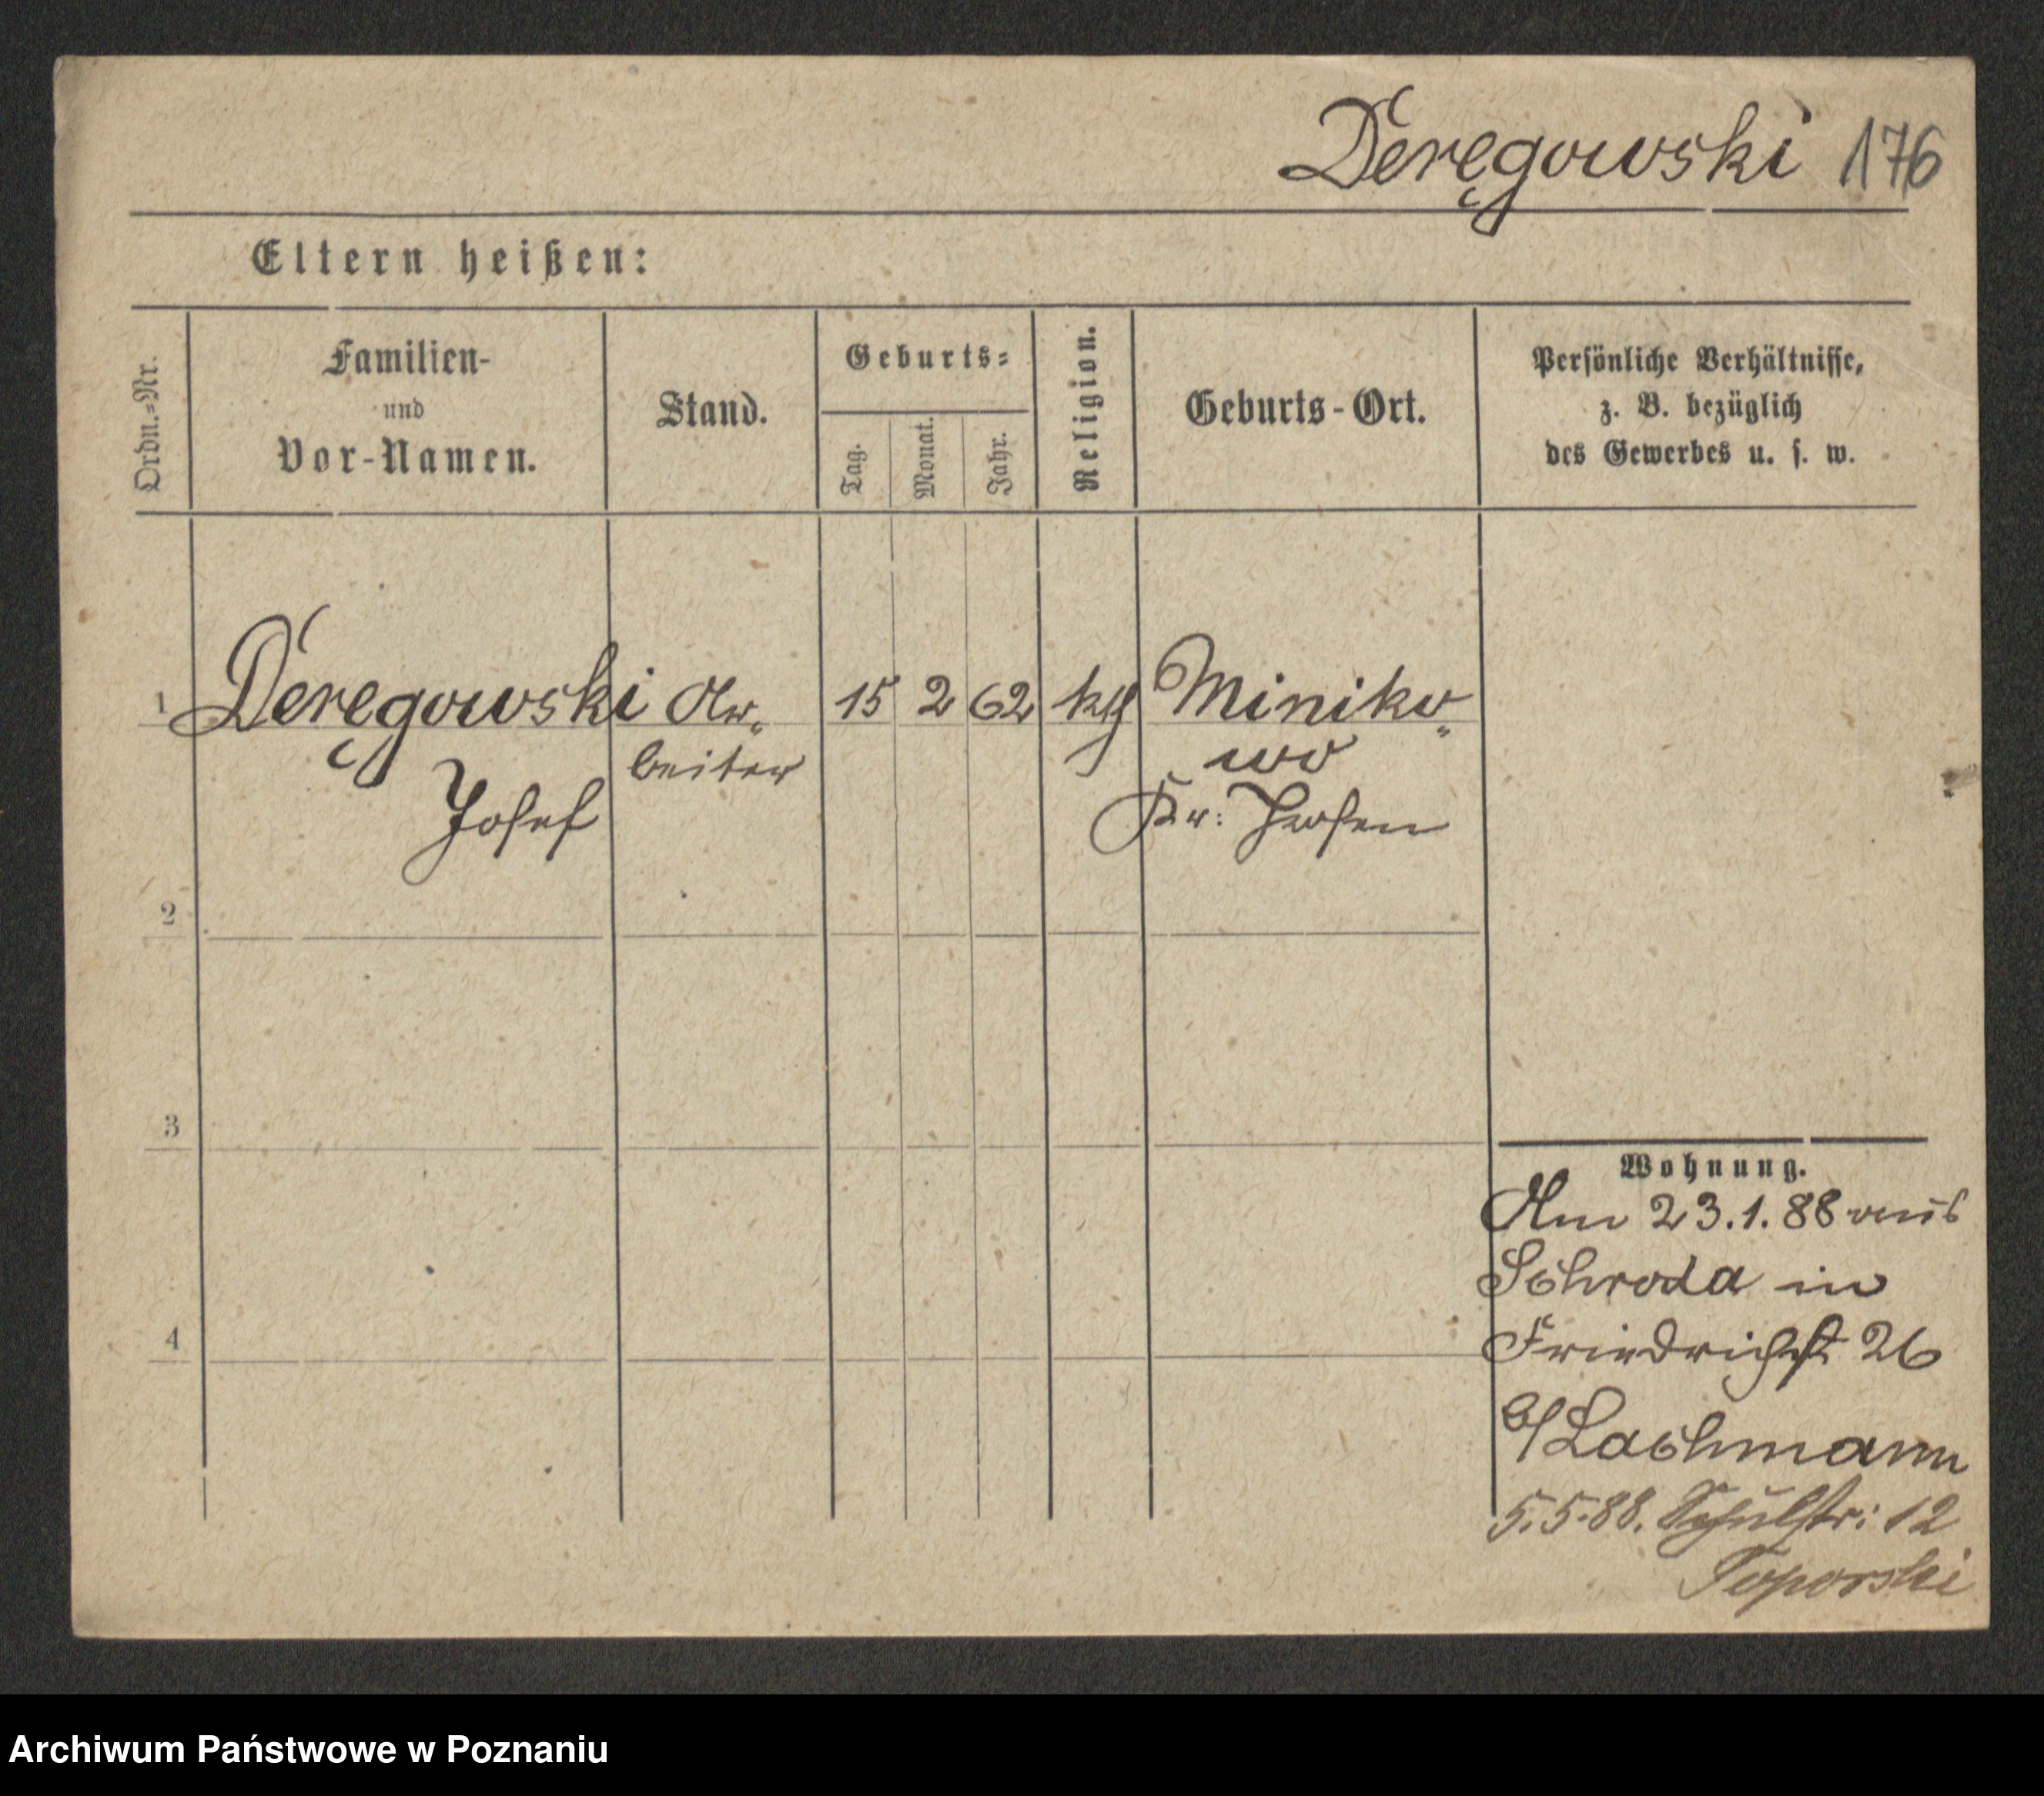 Deręgowski 176
Eltern heißen:
Ordn.-Nr.
Familien-
und
Vor-Namen.
Stand.
Geburts-
Tag.
Monat.
Jahr.
Religion.
Geburts-Ort.
Persönliche Verhältnisse,
z. B. bezüglich
des Gewerbes u. s. w.
1 Deręgowski Ar- 15 2 62 kth Miniko-
beiter wo
Josef Kr: Posen
2
3
4
Wohnung.
Am 23.1.88 aus
Schroda in
Friedrichst 26
b/ Lachmann
5.5.88. Schulstr: 12
Toporski
Archiwum Państwowe w Poznaniu